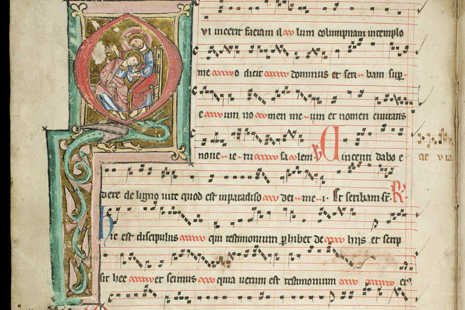 vi incerit faciam il lum columpnam intemplo
me o dicit dominus et scri bam sup
e um no men me um et nomen ciuitatis
noue ie ru sa lem V Uincenti dabo e
dere de ligno uite quod est inparadiso dei me i Et scribam R
hic est discipulus qui testimonium perhibet de hijs et scrip
sit hec et scimus quia uerum est testimonium ei